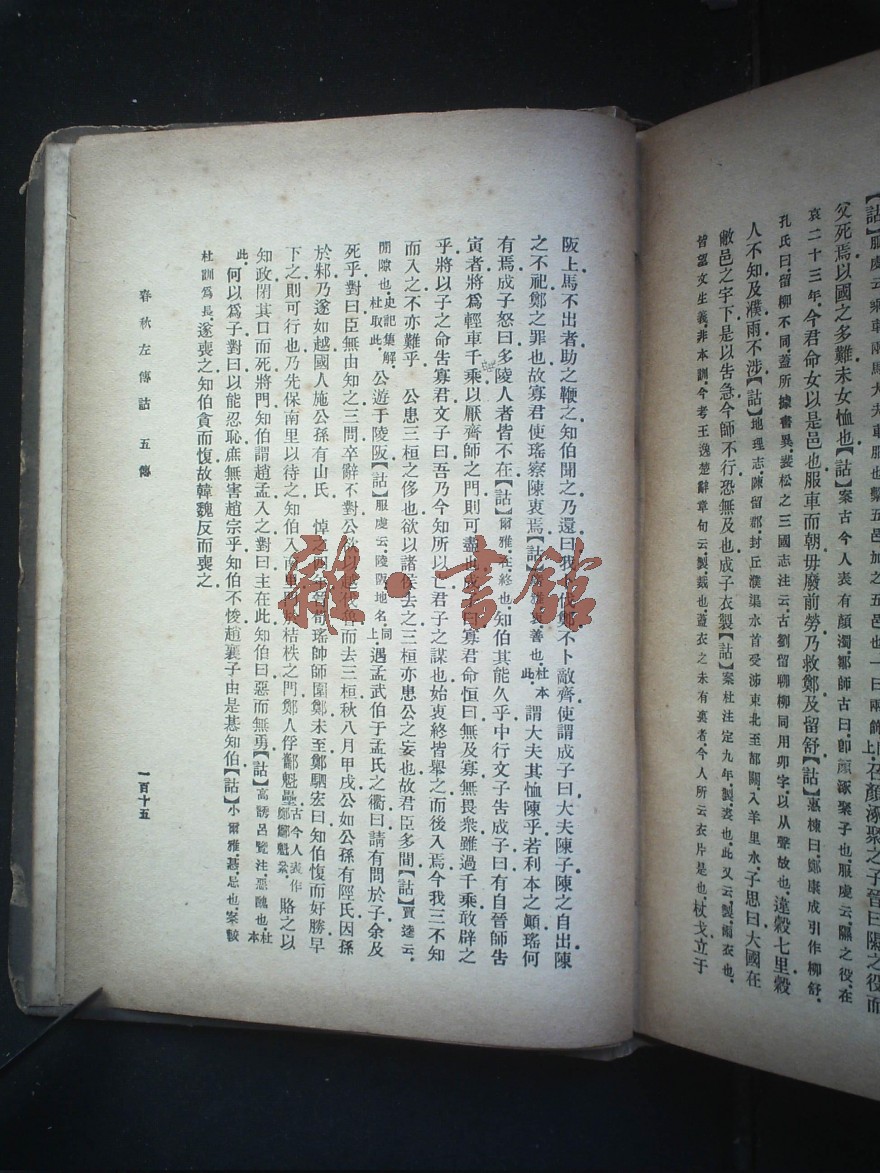 【詁】服虔云乘車兩馬大夫車服也繫五邑加之五邑也一曰兩飾
上召顏涿聚之子晉曰隰之役而
父死焉以國之多難未女恤也【詁】案古今人表有顏濁鄒師古曰卽顏涿聚子也服虔云隰之役在
哀二十三年今君命女以是邑也服車而朝毋廢前勞乃救鄭及留舒【詁】惠棟曰鄭康成引作柳舒
孔氏曰留柳不同蓋所據書異裴松之三國志注云古劉留聊柳同用丣字以从聲故也違穀七里穀
人不知及濮雨不涉【詁】地理志陳留郡封丘濮渠水首受泲東北至都關入羊里水子思曰大國在
敝邑之宇下是以告急今師不行恐無及也成子衣製【詁】案杜注定九年製裘也此又云製雨衣也
皆望文生義非本訓今考王逸楚辭章句云製裁也蓋衣之未有裏者今人所云衣片是也杖戈立于
阪上馬不出者助之鞭之知伯聞之乃還曰我卜伐鄭不卜敵齊使謂成子曰大夫陳子陳之自出陳
之不祀鄭之罪也故寡君使瑤察陳衷焉【詁】善也杜本此謂大夫其恤陳乎若利本之顚瑤何
有焉成子怒曰多陵人者皆不在【詁】爾雅在終也知伯其能久乎中行文子告成子曰有自晉師告
寅者將爲輕車千乘以厭齊師之門則可盡也成子曰寡君命恒曰無及寡無畏衆雖過千乘敢辟之
乎將以子之命告寡君文子曰吾乃今知所以亡君子之謀也始衷終皆舉之而後入焉今我三不知
而入之不亦難乎　公患三桓之侈也欲以諸侯去之三桓亦患公之妄也故君臣多間【詁】賈逵云
間隙也史記集解杜取此公遊于陵阪【詁】服虔云陵阪地名同上遇孟武伯于孟氏之衢曰請有問於子余及
死乎對曰臣無由知之三問卒辭不對公欲以越伐魯而去三桓秋八月甲戌公如公孫有陘氏因孫
於邾乃遂如越國人施公孫有山氏　悼之四年晉荀瑤帥師圍鄭未至鄭駟宏曰知伯愎而好勝早
下之則可行也乃先保南里以待之知伯入南里門于桔柣之門鄭人俘酅魁壘古今人表作鄭酅魁絫賂之以
知政閉其口而死將門知伯謂趙孟入之對曰主在此知伯曰惡而無勇【詁】高誘呂覽注惡醜也杜本
此何以爲子對曰以能忍恥庶無害趙宗乎知伯不悛趙襄子由是惎知伯【詁】小爾雅惎忌也案較
杜訓爲長遂喪之知伯貪而愎故韓魏反而喪之
春秋左傳詁　五　傳　一百十五
雜·書館